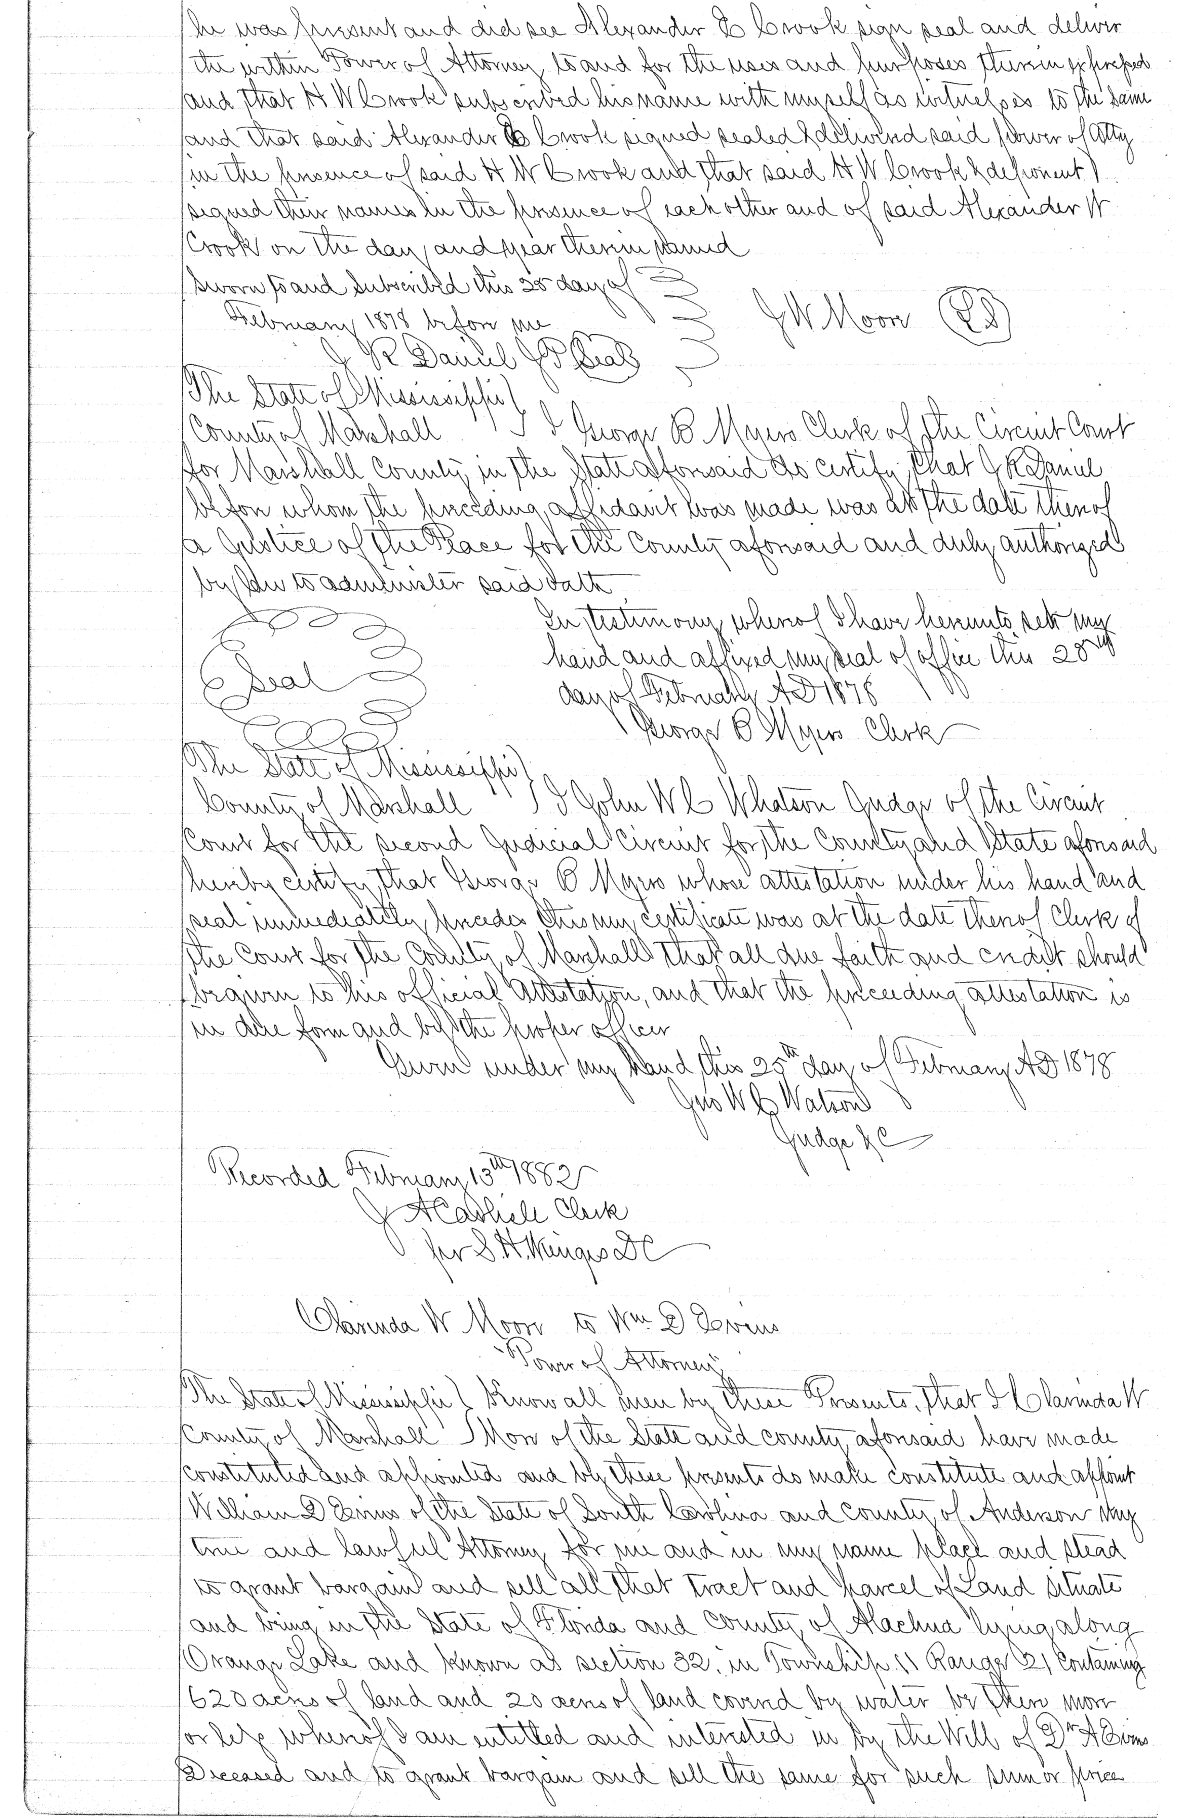 he was present and did see Alexander E Crook sign seal and deliver
the within Power of Attorney to and for the uses and purposes therein expressed
and that H W Crook subscribed his name with myself as witnesses to the same
and that said Alexander E Crook signed sealed & delivered said power of Atty
in the presence of said H W Crook and that said H W Crook & deponent
signed their names in the presence of each other and of said Alexander W
Crook on the day and year therein named
Sworn to and Subscribed this 25 day of
February 1878 before me
J W Moon (LS)
J R Daniel JP (Seal)
The State of Mississippi }
County of Marshall } I George B Myers Clerk of the Circuit Court
for Marshall County in the State aforesaid do certify that J R Daniel
before whom the preceding affidavit was made was at the date thereof
a Justice of the Peace for the County aforesaid and duly authorized
by law to administer said oath
In testimony whereof I have hereunto set my
hand and affixed my seal of office this 28rd
Seal
day of February AD 1878
George B Myers Clerk
The State of Mississippi }
County of Marshall } I John W C Whatson Judge of the Circuit
Court for the second Judicial Circuit for the County and State aforesaid
hereby certify that George B Myers whose attestation under his hand and
seal immediately precedes this my certificate was at the date thereof Clerk of
the Court for the County of Marshall that all due faith and credit should
be given to his official Attestation, and that the preceeding attestation is
in due form and by the proper officer
Given under my hand this 25th day of February AD 1878
Jno W C Watson
Judge &C
Recorded February 13th 1882
J A Carlisle Clerk
per S. H. Wienges DC
Clarinda W Moon to Wm D Evins
"Power of Attorney"
The State of Mississippi } Know all men by these Presents, that I Clarinda W
County of Marshall } Moon of the State and county aforesaid have made
constituted and appointed and by these presents do make constitute and appoint
William D Evins of the State of South Carolina and County of Anderson my
true and lawful Attorney for me and in my name place and stead
to grant bargain and sell all that tract and parcel of Land situate
and being in the State of Florida and County of Alachua lying along
Orange Lake and known as section 32, in Township 11 Range 21 Containing
620 acres of land and 20 acres of land covered by water be there more
or less whereof I am entitled and interested in by the Will of Dr A Evins
Deceased and to grant bargain and sell the same for such sum or price